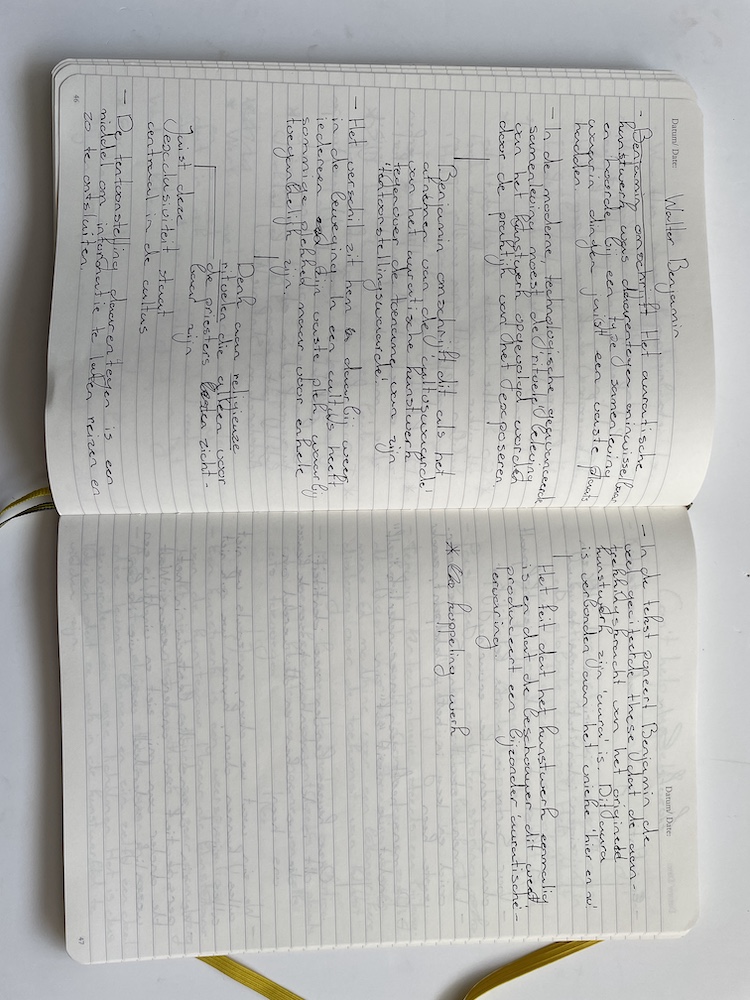 Datum/ Date: Walter Benjamin
- Benjamin omschrijft Het auratische
kunstwerk was daarentegen oninwisselbaar
en hoorde bij een type samenleving
waarin dingen juist een vaste plaats
hadden.
- In de moderne, technologische geavanceerde
samenleving moest de 'rituele' beleving
van het kunstwerk opgevolgd worden
door de praktijk van het exposeren.
Benjamin omschrijft dit als het
afnemen van de 'cultuswaarde'
van het auratische kunstwerk
tegenover de toename van zijn
'tentoonstellingswaarde'.
- Het verschil zit hem daarbij weer
in de beweging. In een cultus heeft
iedereen zijn vaste plek, waarbij
sommige plekken maar voor enkele
toegankelijk zijn.
Denk aan religieuze
rituelen die alleen voor
de priesters zicht-
baar zijn
Juist deze
exclusiviteit staat
centraal in de cultus
- De tentoonstelling daarentegen is een
middel om informatie te laten reizen en
zo te ontsluiten.
46
Datum/ Date:
- In de tekst poneert Benjamin de
veel geciteerde these dat de aan-
trekkingskracht van het origineel
kunstwerk zijn 'aura' is. Dit aura
is verbonden aan het unieke 'hier en nu'
Het feit dat het kunstwerk eenmalig
is en dat de beschouwer dit weet,
produceert een bijzonder 'auratische'-
ervaring.
* koppeling werk
47